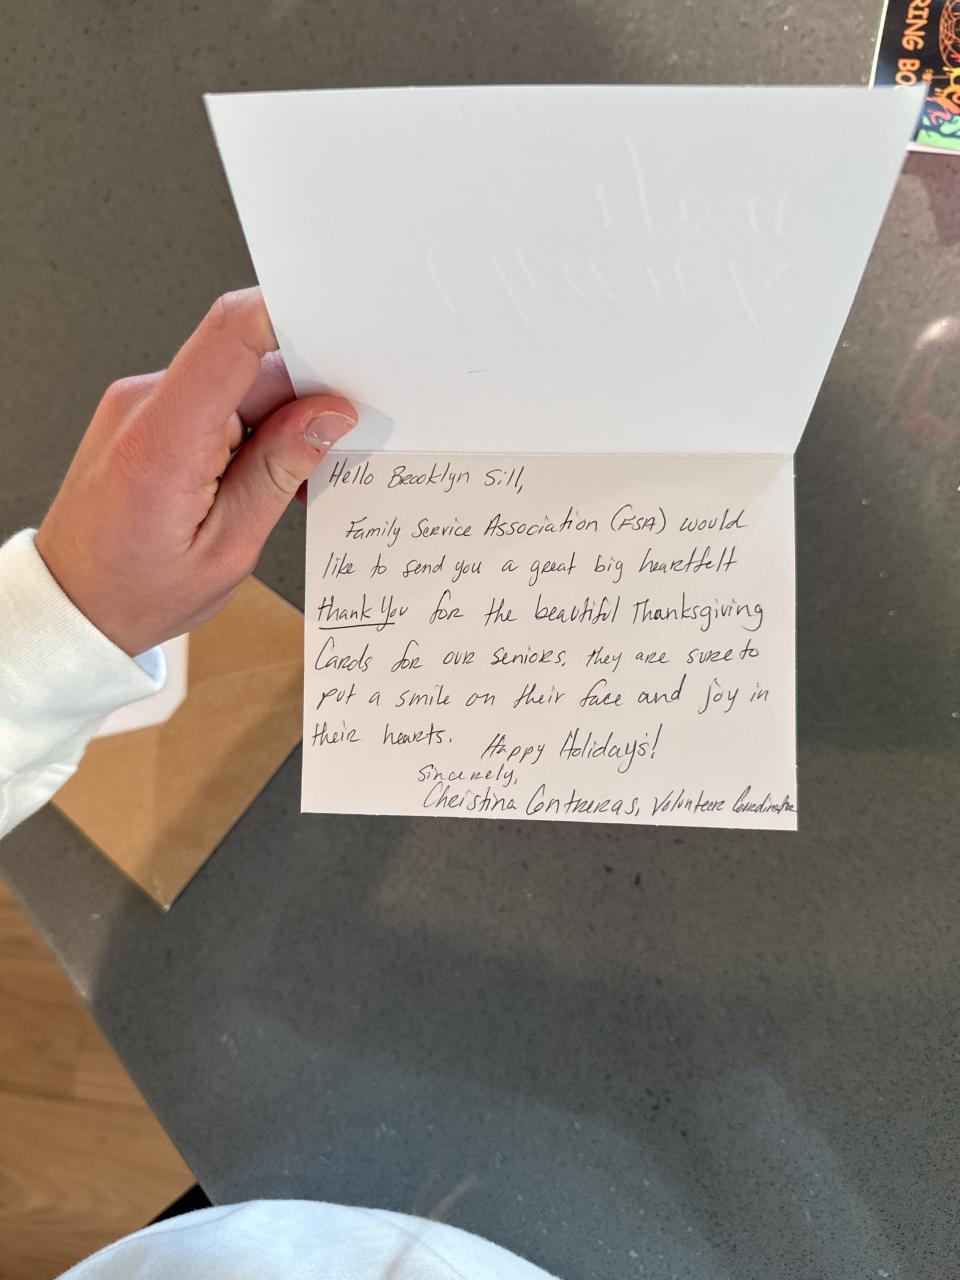 RING BO
you
thank
Hello Brooklyn Sill,
Family Service Association (FSA) would
like to send you a great big heartfelt
thank you for the beautiful Thanksgiving
Cards for our seniors, they are sure to
put a smile on their face and joy in
their hearts. Happy Holidays!
Sincerely,
Christina Contreras, Volunteer Coordinator